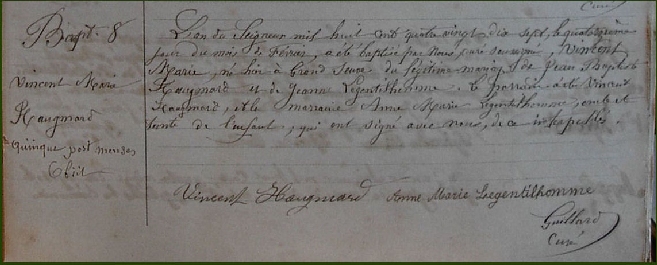 Bapt. 8
Vincent Marie
Haugmard
quinque post menses
Obiit
L'an du Seigneur mil huit cent quatre vingt dix sept, le quatorzième
jour du mois de Février, a été baptisé par nous, curé soussigné, Vincent
Marie, né hier à Grond du légitime mariage de Jean Baptiste
Haugmard et de Jeanne Legentilhomme. Le parrain a été Vincent
Haugmard, et la marraine Anne Marie Legentilhomme, oncle et
tante de l'enfant, qui ont signé avec nous, de ce interpellés.
Vincent Haugmard Anne Marie Legentilhomme
Guillard
Curé